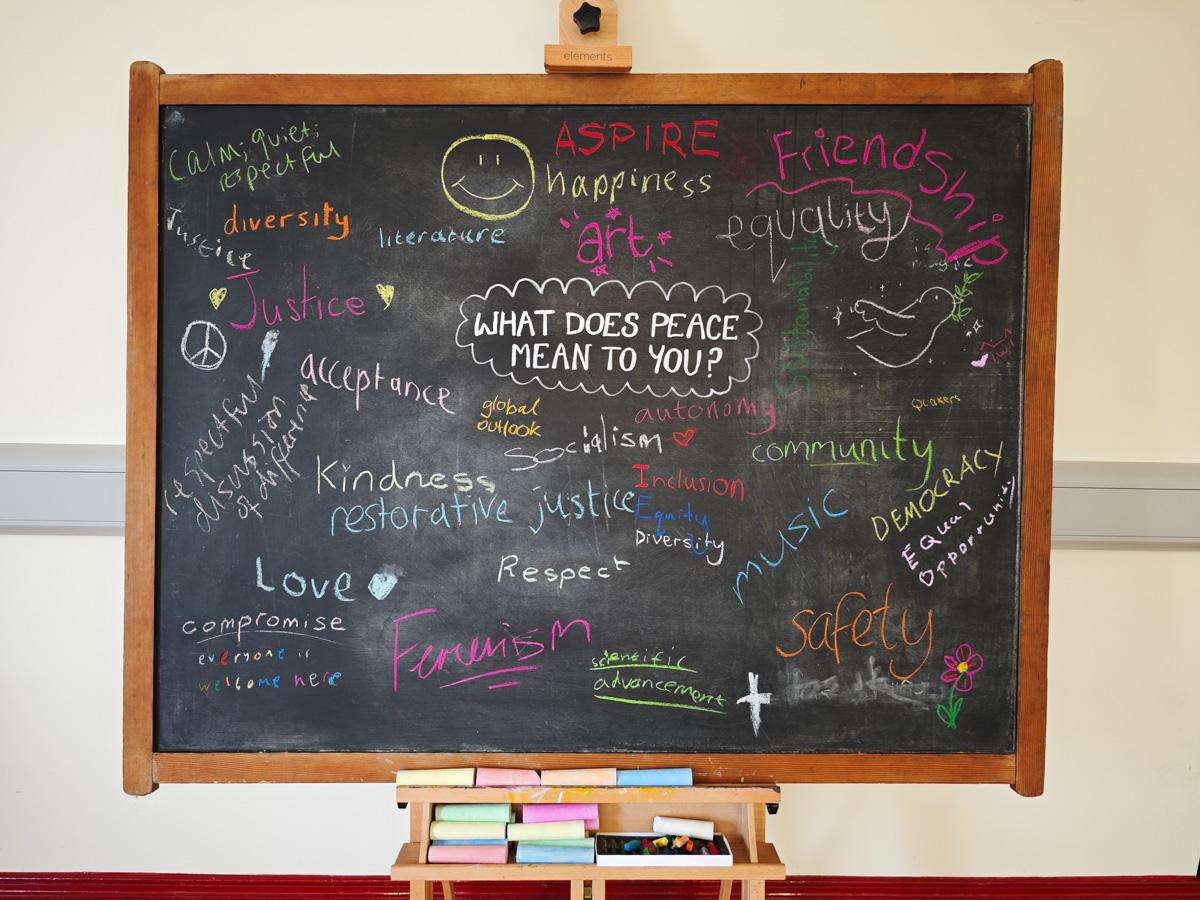 elements
Calm; quiet;
respectful
ASPIRE
happiness
Friendship
Justice
diversity
literature
art
equality
Sustainability
Justice
WHAT DOES PEACE
MEAN TO YOU?
acceptance
global
outlook
autonomy
Quakers
socialism
community
respectful
discussion
of difference
Kindness
restorative justice
Inclusion
Equity
Diversity
music
DEMOCRACY
Equal
Opportunity
Respect
Love
compromise
everyone is
welcome here
Feminism
scientific
advancement
safety